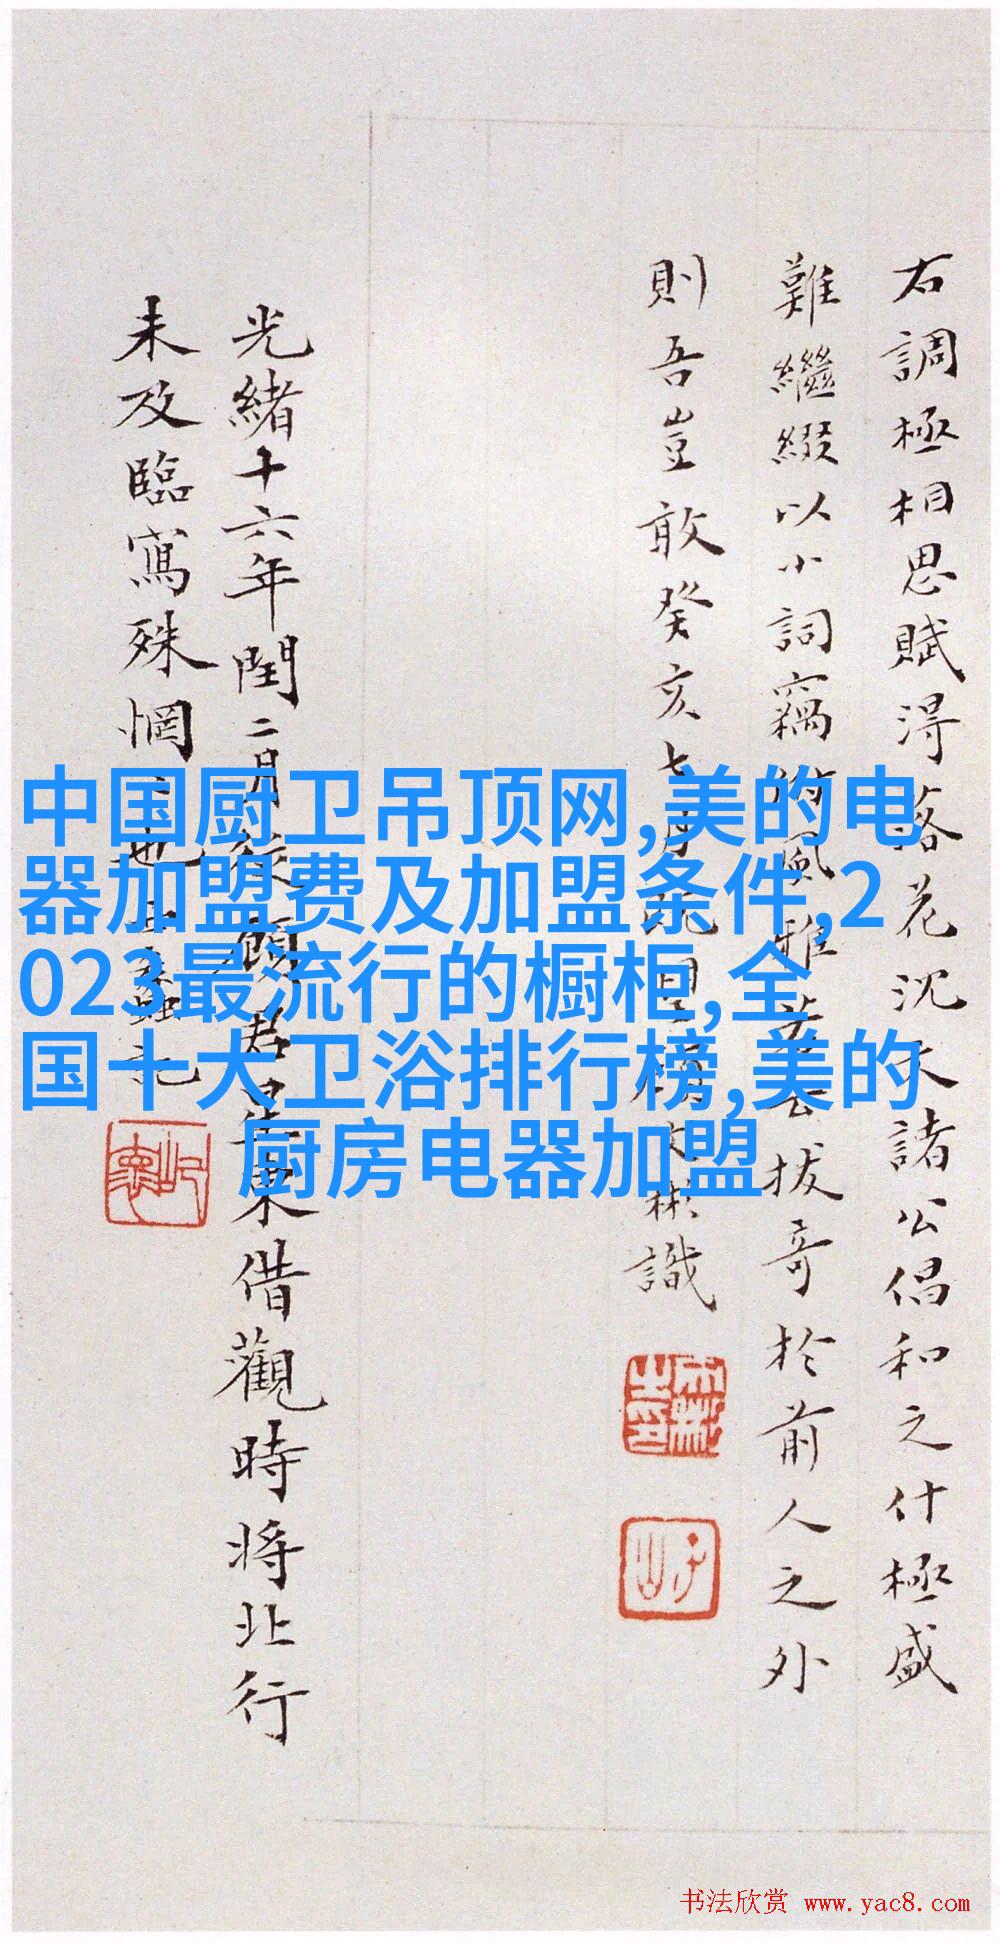 右調極相思賦得落花沈文諸公倡和之什極盛
難繼綴以小詞竊附風雅若云拔奇於前人之外
則吾豈敢癸亥七月既望文彬識
光緒十六年閏二月從顧君星東借觀時將北行
未及臨寫殊惘
也
記
中国厨卫吊顶网,美的电
器加盟费及加盟条件,2
023最流行的橱柜,全
国十大卫浴排行榜,美的
厨房电器加盟
书法欣赏 www.yac8.com